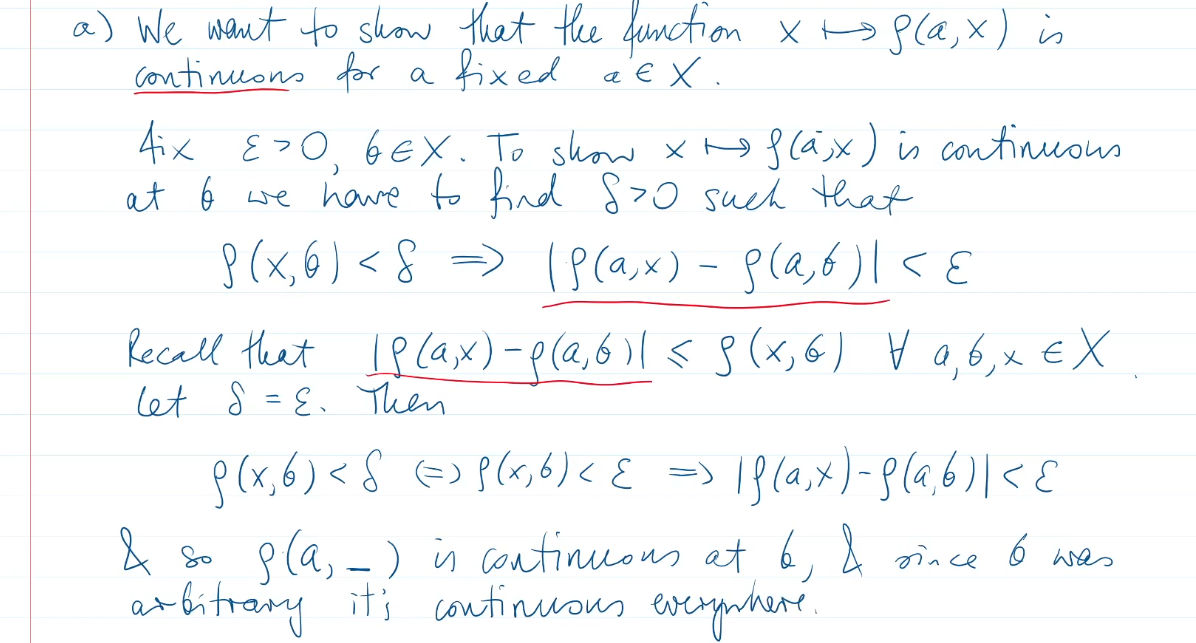 a) We want to show that the function x ↦ ρ(a,x) is
continuous for a fixed a ∈ X.
Fix ε>0, b∈X. To show x ↦ ρ(a,x) is continuous
at b we have to find δ>0 such that
ρ(x,b) < δ ⟹ |ρ(a,x) - ρ(a,b)| < ε
Recall that |ρ(a,x)-ρ(a,b)| ≤ ρ(x,b) ∀ a,b,x ∈ X.
Let δ = ε. Then
ρ(x,b)<δ ⟺ ρ(x,b)<ε ⟹ |ρ(a,x)-ρ(a,b)|<ε
& so ρ(a,_) is continuous at b, & since b was
arbitrary it's continuous everywhere.